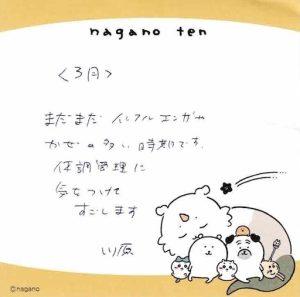 nagano ten
<3月>
まだまだ インフルエンザや
かぜの多い時期です。
体調管理に
気をつけて
すごします
川原
©nagano